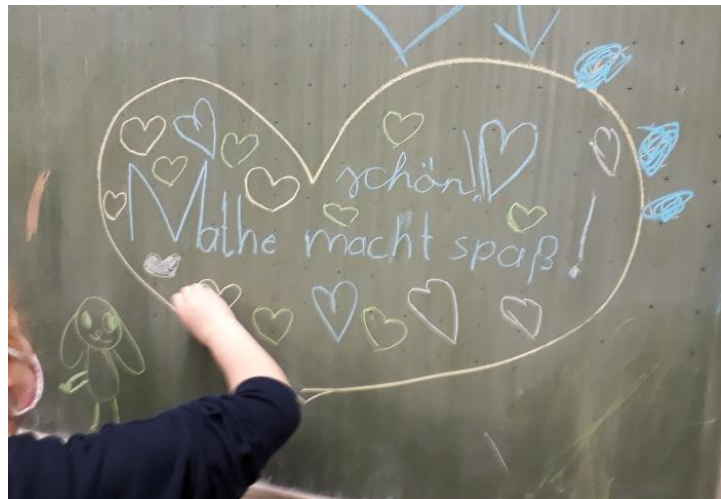 schön!
Mathe macht spaß!